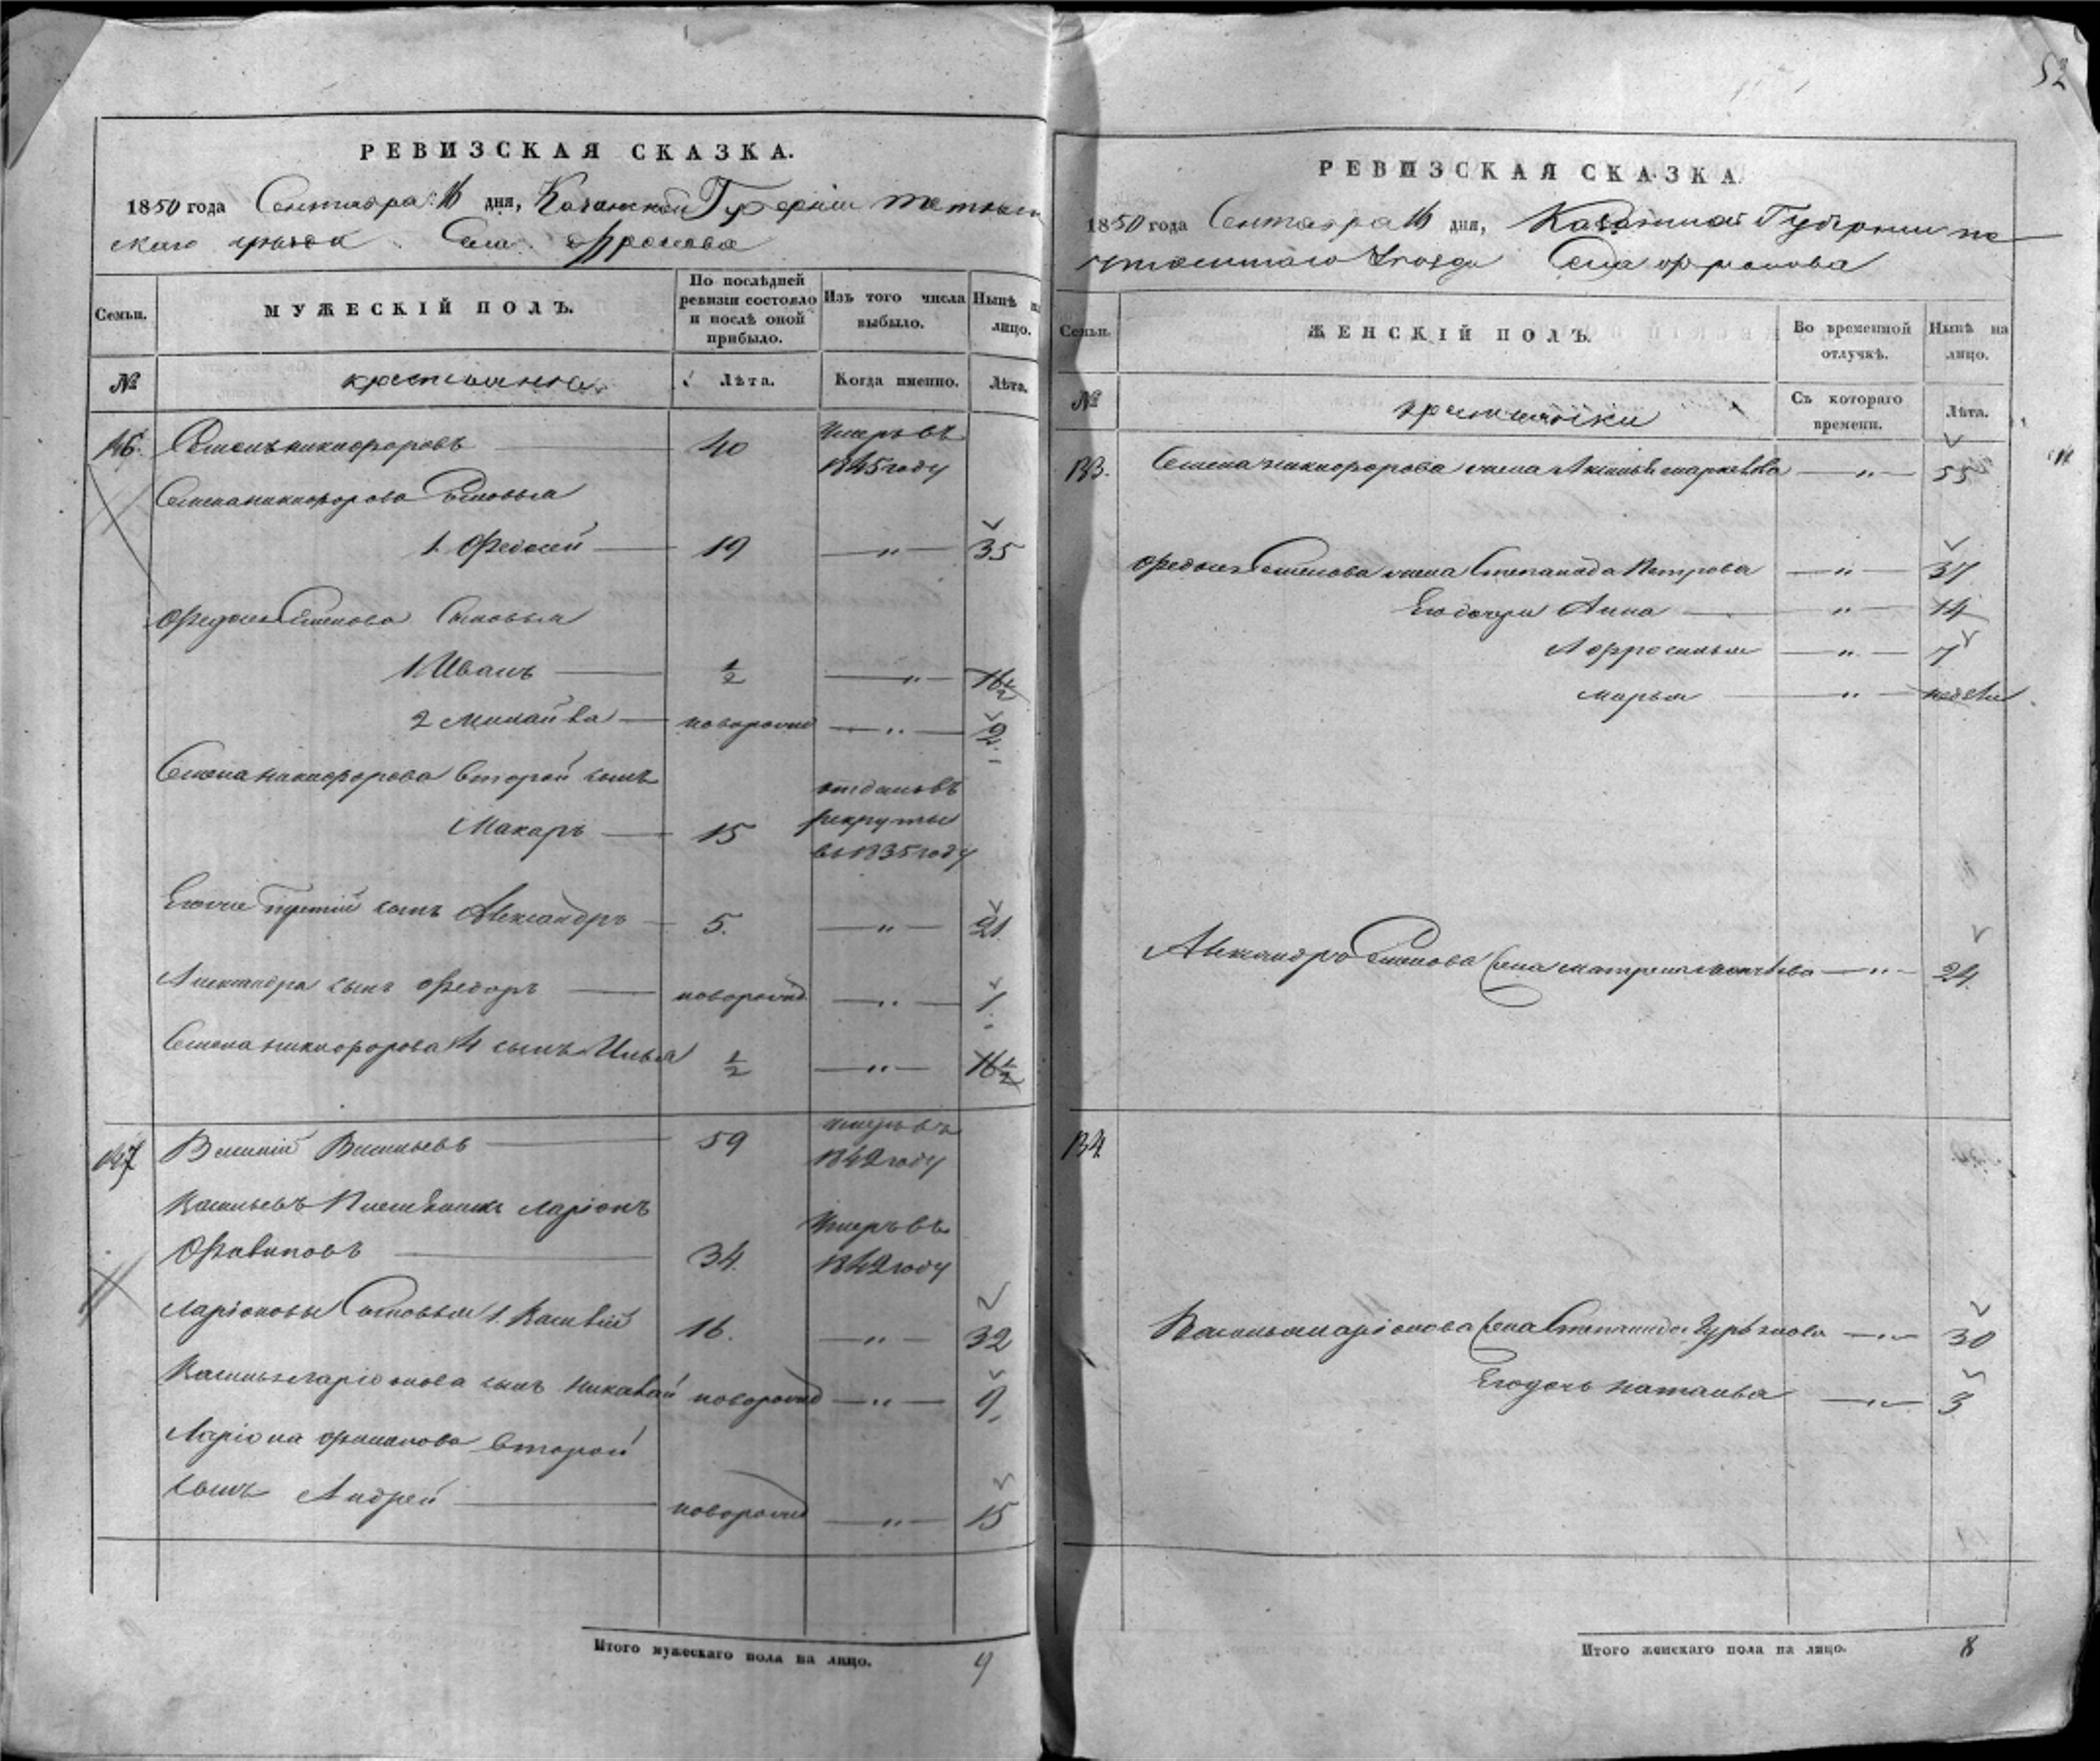 52
РЕВИЗСКАЯ СКАЗКА.
1850 года Сентября 16 дня, Казанской Губернии Тетюш
скаго уезда Села Фролова
Семьи. МУЖЕСКІЙ ПОЛЪ. По послѣдней ревизіи состояло и послѣ оной прибыло. Изъ того числа выбыло. Нынѣ на лицо.
№ крестьянъ Лѣта. Когда именно. Лѣта.
Семенъ никифоровъ 40 Умеръ въ
1845 году
Семена никифорова Сыновья
1. Федосей 19 — " — 35
Федосея Семенова Сыновья
1 Иванъ ½ — " — 16½
2 новорожд — " — 2
Семена никифорова второй сынъ
отданъ въ
Макаръ 15 рекруты
въ 1835 году
Егоже третій сынъ Александръ 5. — " — 21
Александра сынъ Федоръ новорожд — " — 1
Семена никифорова 4 сынъ Илья ½ — " — 16½
147 Василій Васильевъ 59 умеръ въ
1842 году
Васильевъ Племянникъ Ларіонъ
34. Умеръ въ
1842 году
Ларіоновы Сыновья 1. Василій 16. — " — 32
Василья Ларіонова сынъ Николай новорожд — " — 9
Ларіона второй
сынъ Андрей новорожд — " — 15
Итого мужескаго пола на лицо. 9
РЕВИЗСКАЯ СКАЗКА.
1850 года Сентября 16 дня, Казанской Губернии Те
тюшскаго Уезда Села Фролова
Семьи. ЖЕНСКІЙ ПОЛЪ. Во временной отлучкѣ. Нынѣ на лицо.
№ крестьянки Съ котораго времени. Лѣта.
133. Семена никифорова жена Акулина маркелова — " — 55
Федосея Семенова жена Степанида Петрова — " — 37
Его дочери Анна — " — 14
Афросинья — " — 7
марья — " — недели
Александра Семенова жена матрена — " — 24
134.
Василья ларіонова жена Степанида Гурьянова — " — 30
Его дочь наталья — " — 3
Итого женскаго пола на лицо. 8